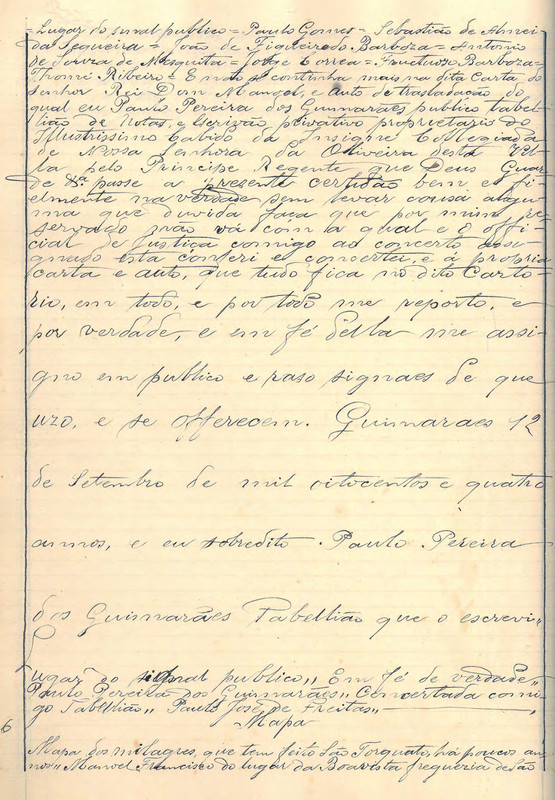 = Lugar do sinal publico = Paulo Gomes = Sebastião de Almei-
da Sequeira = João de Figueiredo Barboza = Antonio
de Souza de Mesquita = Jorge Correa = Fructuoso Barboza =
Thomé Ribeiro = E não se continha mais na dita Carta do
Senhor Rei Dom Manoel, e auto de trasladação do
qual eu Paulo Pereira dos Guimarães publico tabel-
lião de Notas, e Escrivão privativo proprietario do
Illustrissimo Cabido da Insigne Collegiada
de Nossa Senhora da Oliveira desta Vil-
la pelo Principe Regente que Deus Guar-
de &.ª passe a presente certidão bem e fi-
elmente na verdade sem levar cousa algu-
ma que duvida faça que por mim re-
servado não vá com a qual e o offi-
cial de Justiça comigo ao concerto assi-
gnado esta conferi e concertei, e á propria
carta e auto, que tudo fica no dito Carto-
rio, em todo, e por todo me reporto, e
por verdade, e em fé della me assi-
gno em publico e raso signaes de que
uzo, e se offerecem. Guimaraes 12
de Setembro de mil oitocentos e quatro
annos, e eu sobredito Paulo Pereira
dos Guimarães Tabellião que o escrevi"
L
ugar do signal publico" Em fé de verdade"
Paulo Pereira dos Guimarães" Concertada comi-
go Tabellião" Paulo José de Freitas"
Mapa
6
Mapa dos milagres, que tem feito São Torquato, há poucos an-
nos" Manoel Francisco do lugar da Boavista freguezia de São